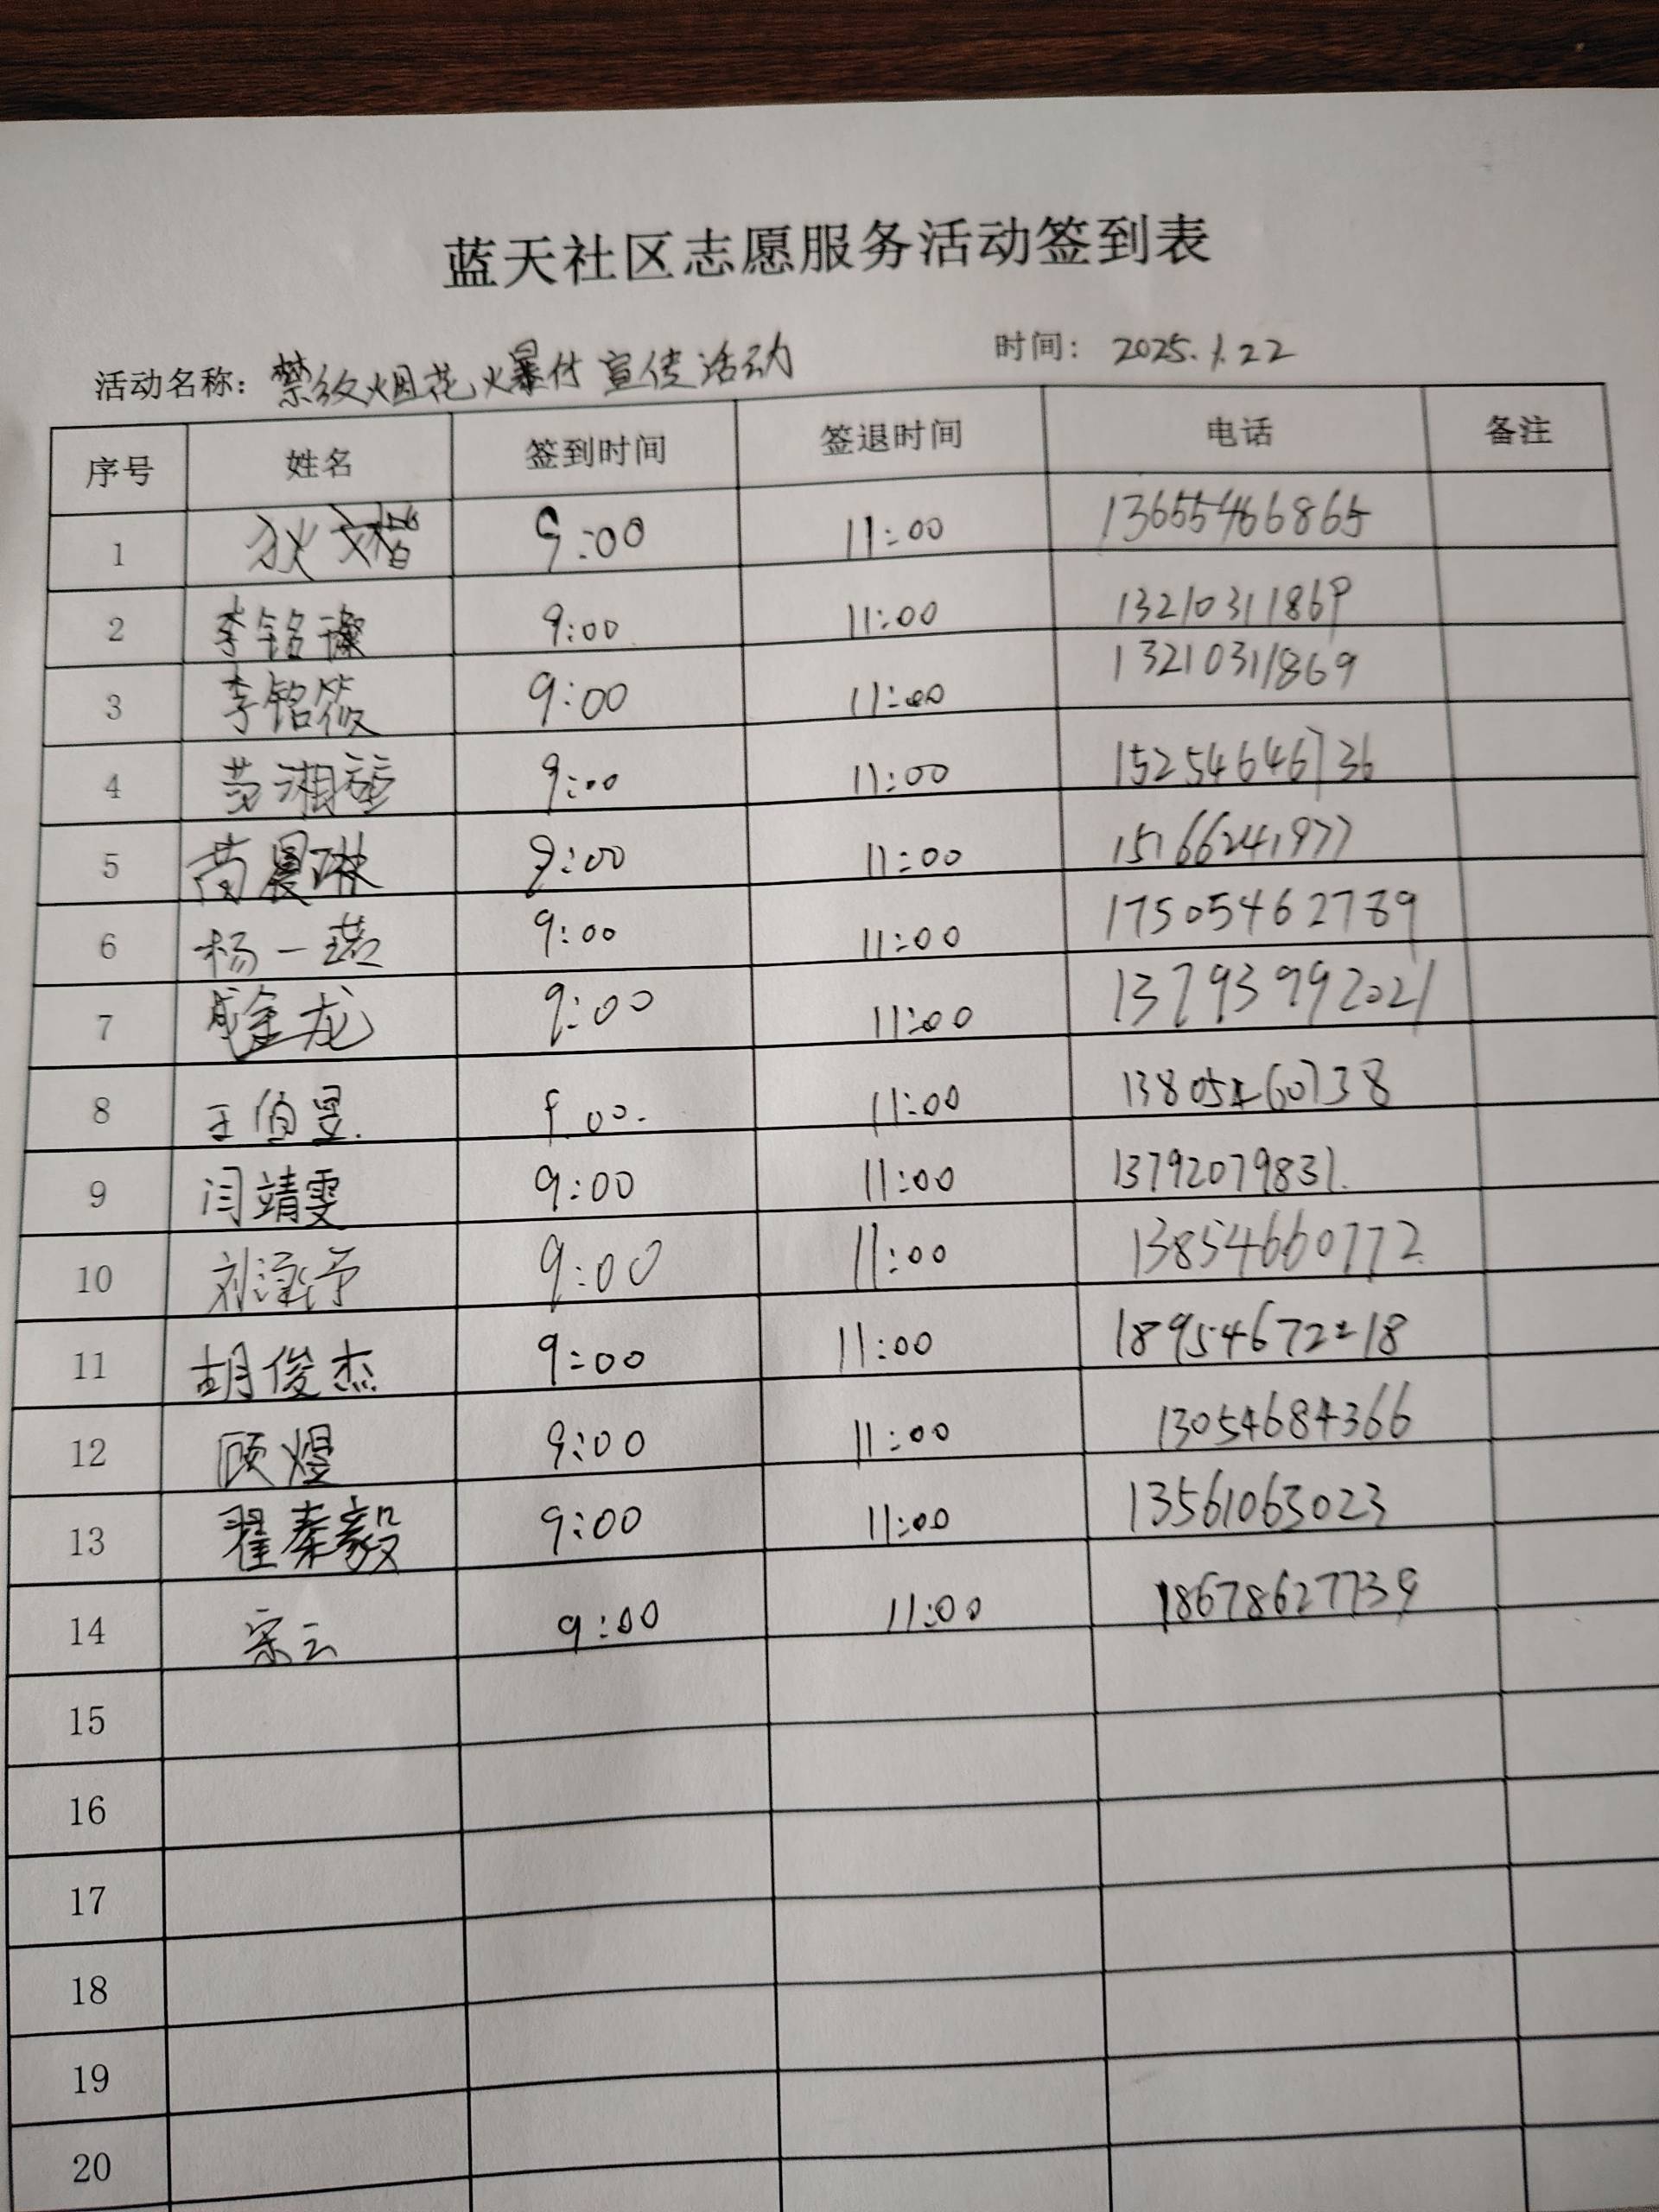 蓝天社区志愿服务活动签到表
活动名称：禁放烟花爆竹宣传活动 时间：2025.1.22
序号 姓名 签到时间 签退时间 电话 备注
1 狄文楷 9:00 11:00 13655466865
2 李铭璨 9:00 11:00 13210311869
3 李铭筱 9:00 11:00 13210311869
4 9:00 11:00 15254646736
5 9:00 11:00 15166241977
6 杨一 9:00 11:00 17505462789
7 9:00 11:00 13793992021
8 王伯昱 9:00 11:00 13805460738
9 闫靖雯 9:00 11:00 13792079831
10 刘泳予 9:00 11:00 13854660772
11 胡俊杰 9:00 11:00 18954672218
12 顾煜 9:00 11:00 13054684366
13 翟秦毅 9:00 11:00 13561063023
14 宋云 9:00 11:00 18678627739
15
16
17
18
19
20